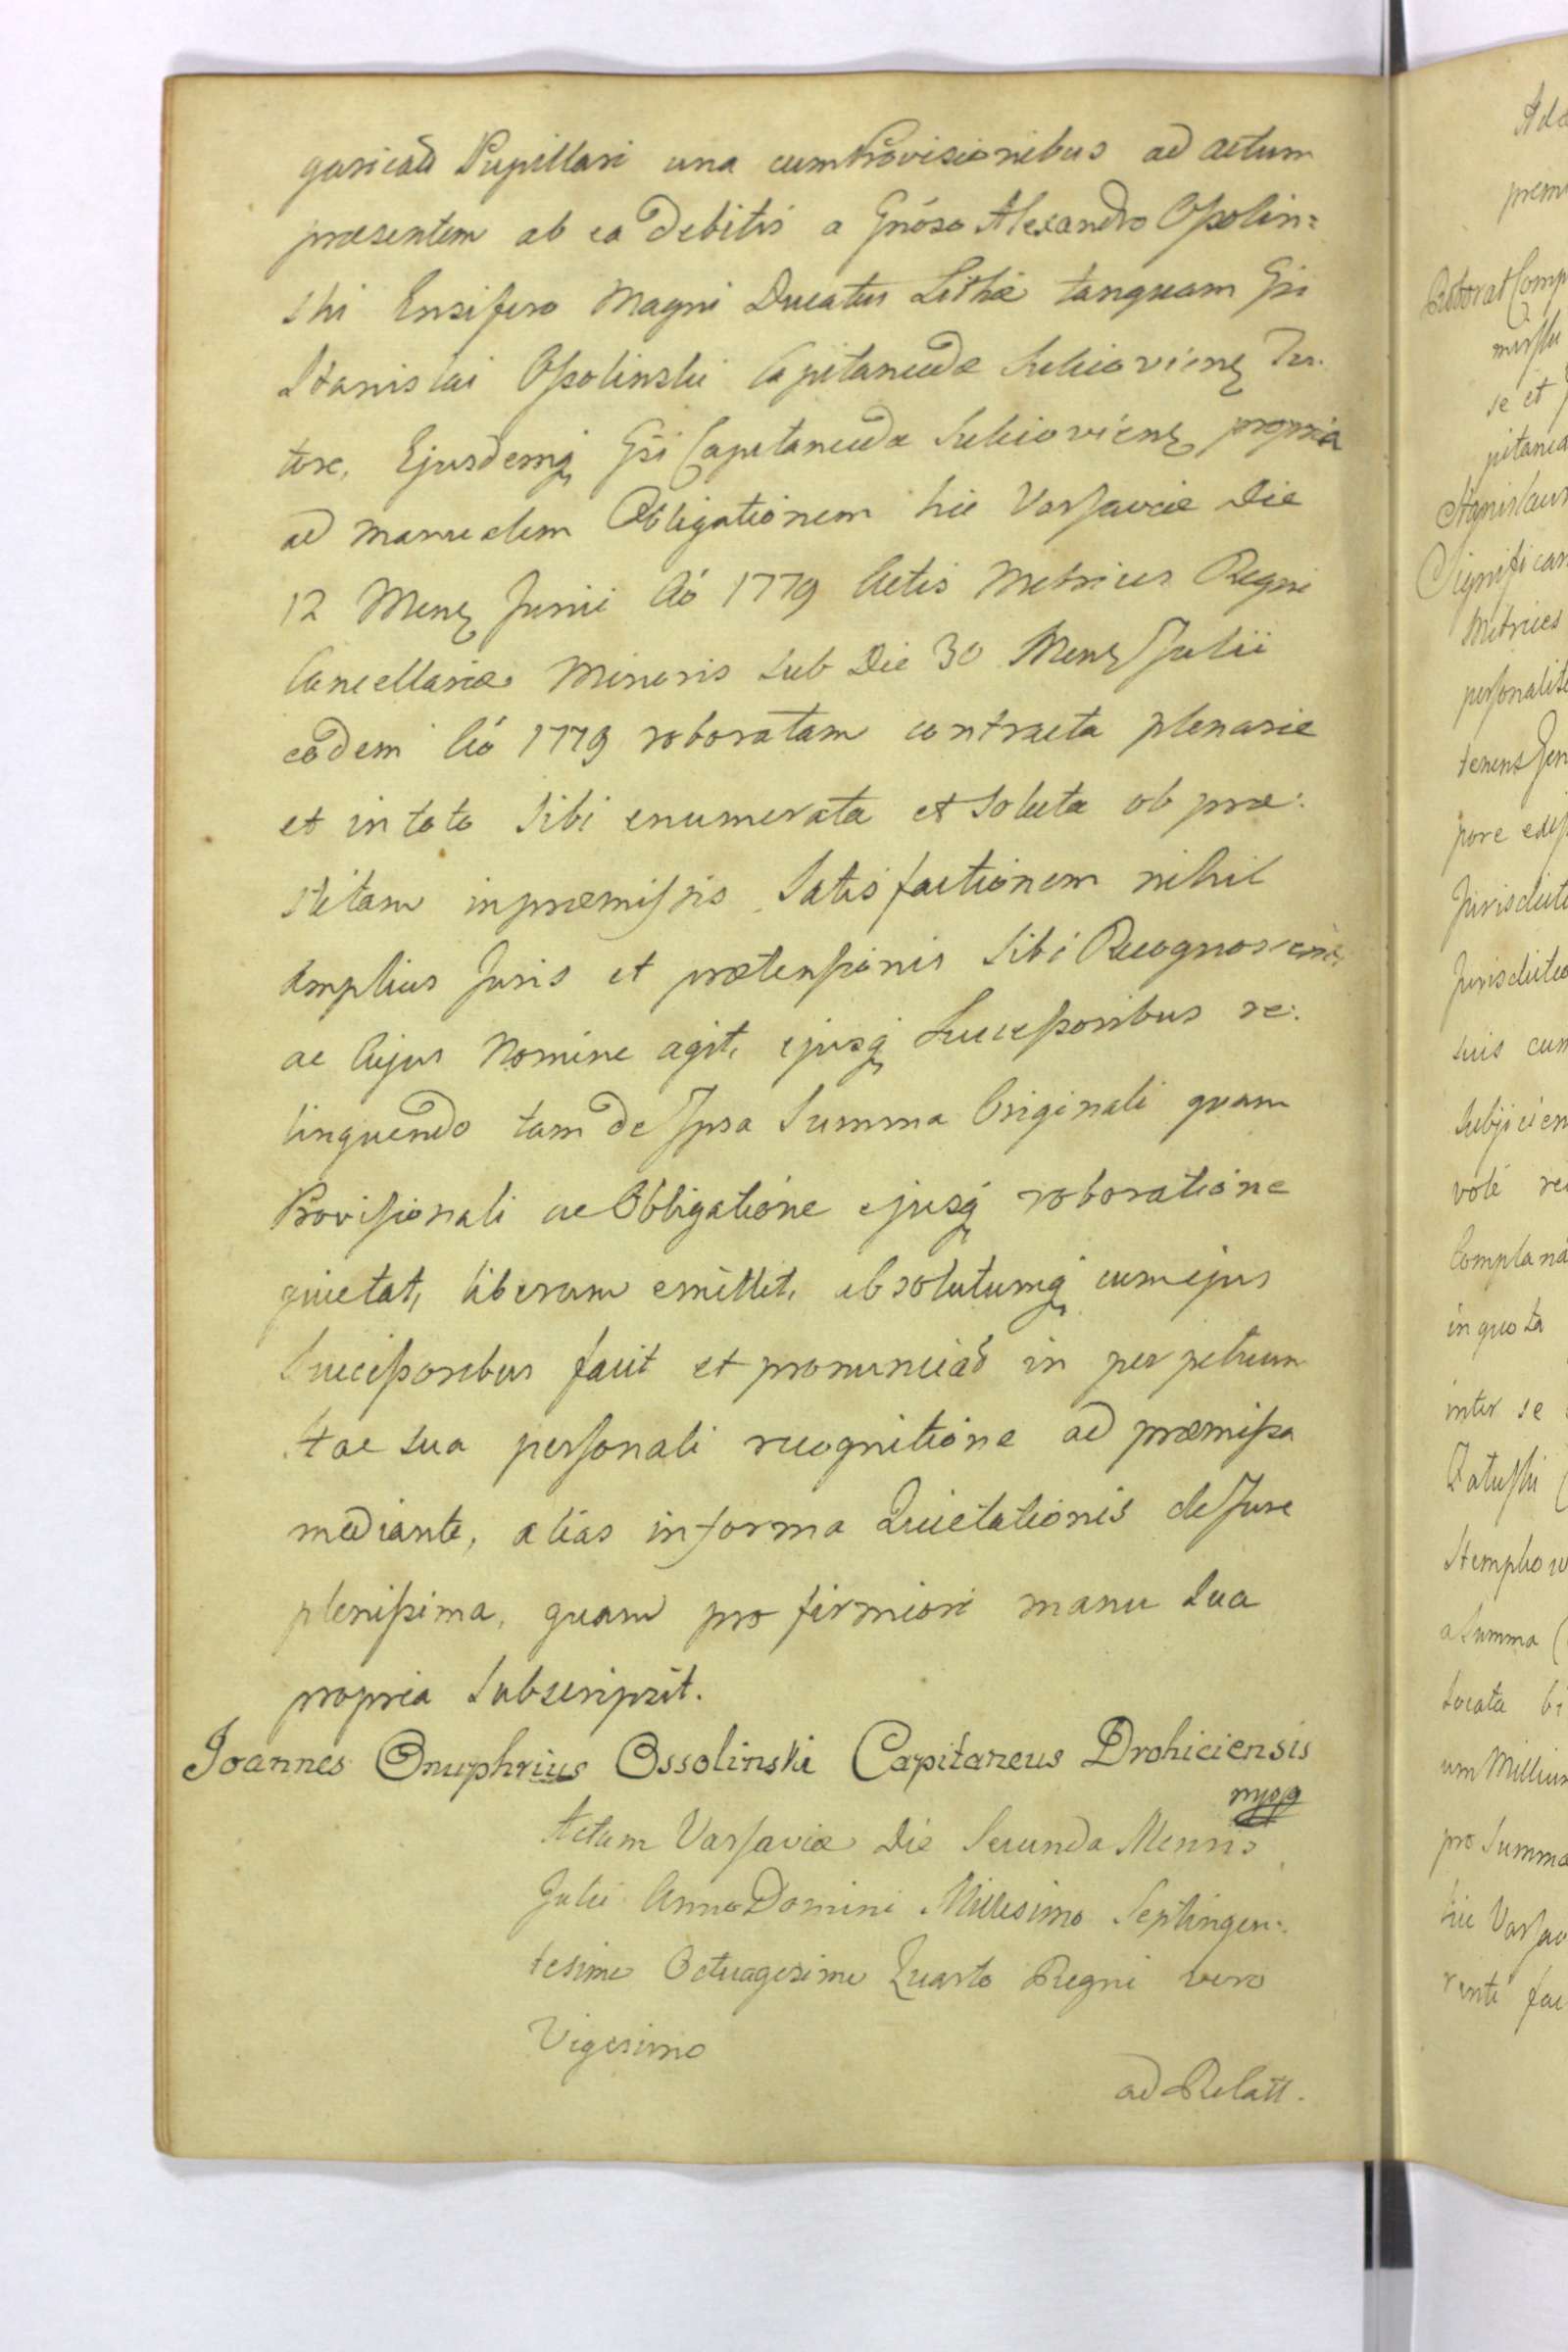 garicali Pupillari una cum Provisionibus ad actum
præsentem ab ea debitis a Gnóso Alexandro Ossolin=
ski Ensifero Magni Ducatus Lithæ tanquam Gsi
Stanislai Ossolinski Capitaneidæ Sulioviens Tu-
tore, Ejusdemq Gsi Capitaneidæ Sulioviens propria
ad manualem Obligationem hic Varsaviæ Die
12 Mens Junii Aó 1779 Actis Metrices Regni
Cancellariæ Minoris sub Die 30 Mens Julii
eodem Aó 1779 roboratam contracta plenarie
et in toto sibi enumerata et soluta ob præ:
stitam in præmissis Satisfactionem nihil
amplius Juris et prætensionis sibi
ac Cujus Nomine agit, ejusq Successoribus re:
linquendo tam de Ipsa Summa Originali quam
Provisionali ac Obligatióne ejusq roboratione
quietat, liberum emittit, absolutumq cum ejus
Successoribus facit et pronunciat in perpetuum
Hac sua personali recognitióne ad præmissa
mediante, alias in forma Quietationis de Jure
plenissima, quam pro firmiori manu sua
propria subscripsit.
Joannes Onuphrius Ossolinski Capitaneus Drohiciensis
mpp
Actum Varsaviæ Die Secunda Mensis
Julii Anno Domini Millesimo Septingen:
tesimo Octuagesimo Quarto Regni vero
Vigesimo
ad Relatt.
premi
se et
Stanislaus
Metrices
tenens
suis cum
in quota
inter se
a Summa
locata bi
pro Summa